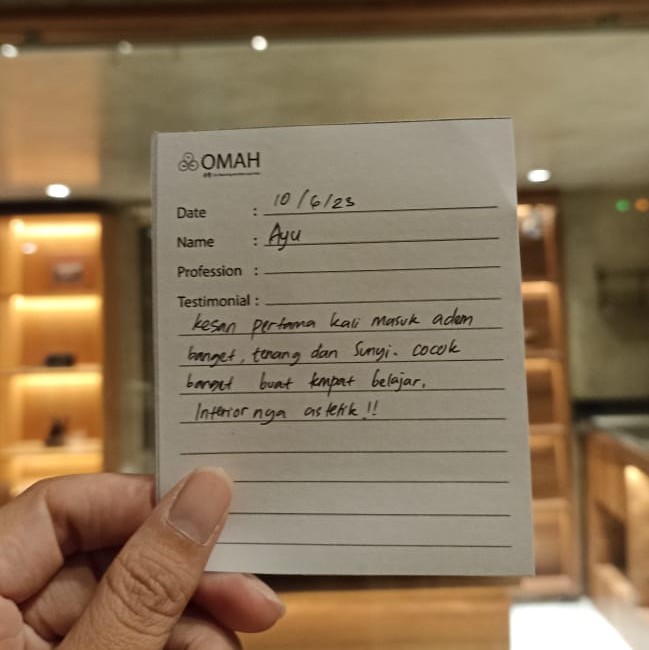 OMAH
Date : 10/6/23
Name : Ayu
Profession :
Testimonial :
kesan pertama kali masuk adem
banget, tenang dan sunyi. cocok
banget buat tmpat belajar.
Interior nya astetik !!